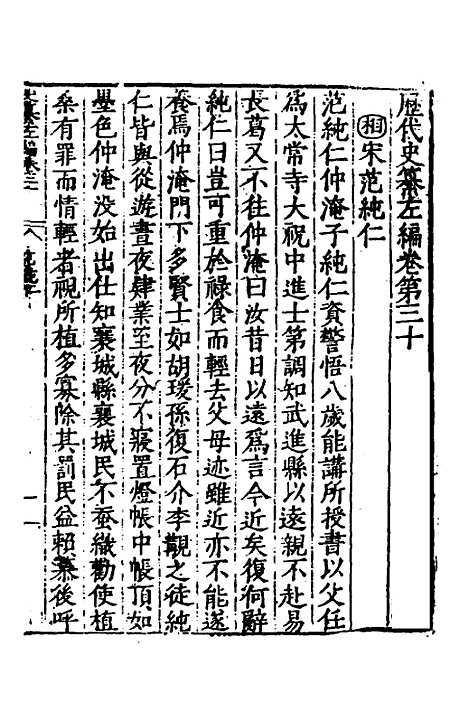 歷代史纂左編卷第三十
相宋范純仁
范純仁仲淹子純仁資警悟八歲能講所授書以父任
爲太常寺大祝中進士第調知武進縣以遠親不赴易
長葛又不往仲淹曰汝昔日以遠爲言今近矣復何辭
純仁曰豈可重於祿食而輕去父母迹雖近亦不能遂
養焉仲淹門下多賢士如胡瑗孫復石介李覯之徒純
仁皆與從遊晝夜肄業至夜分不寢置燈帳中帳頂如
墨色仲淹没始出仕知襄城縣襄城民不蚕織勸使植
桑有罪而情輕者視所植多寡除其罰民益賴慕後呼